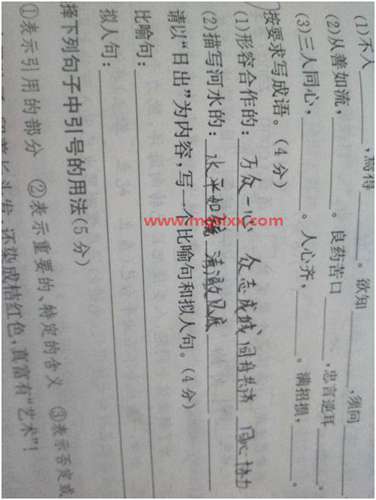 (1)不入______，焉得______。欲知______，须问______
(2)从善如流，______。良药苦口______，忠言逆耳______。
(3)三人同心，______。人心齐，______。满招损，______。
按要求写成语。(4分)
(1)形容合作的：万众一心 众志成城 同舟共济 同心协力
(2)描写河水的：水平如镜 清澈见底
请以“日出”为内容，写一个比喻句和拟人句。(4分)
比喻句：
拟人句：
择下列句子中引号的用法(5分)
①表示引用的部分 ②表示重要的、特定的含义 ③表示否定或
头发，还染成桔红色，真富有“艺术”！